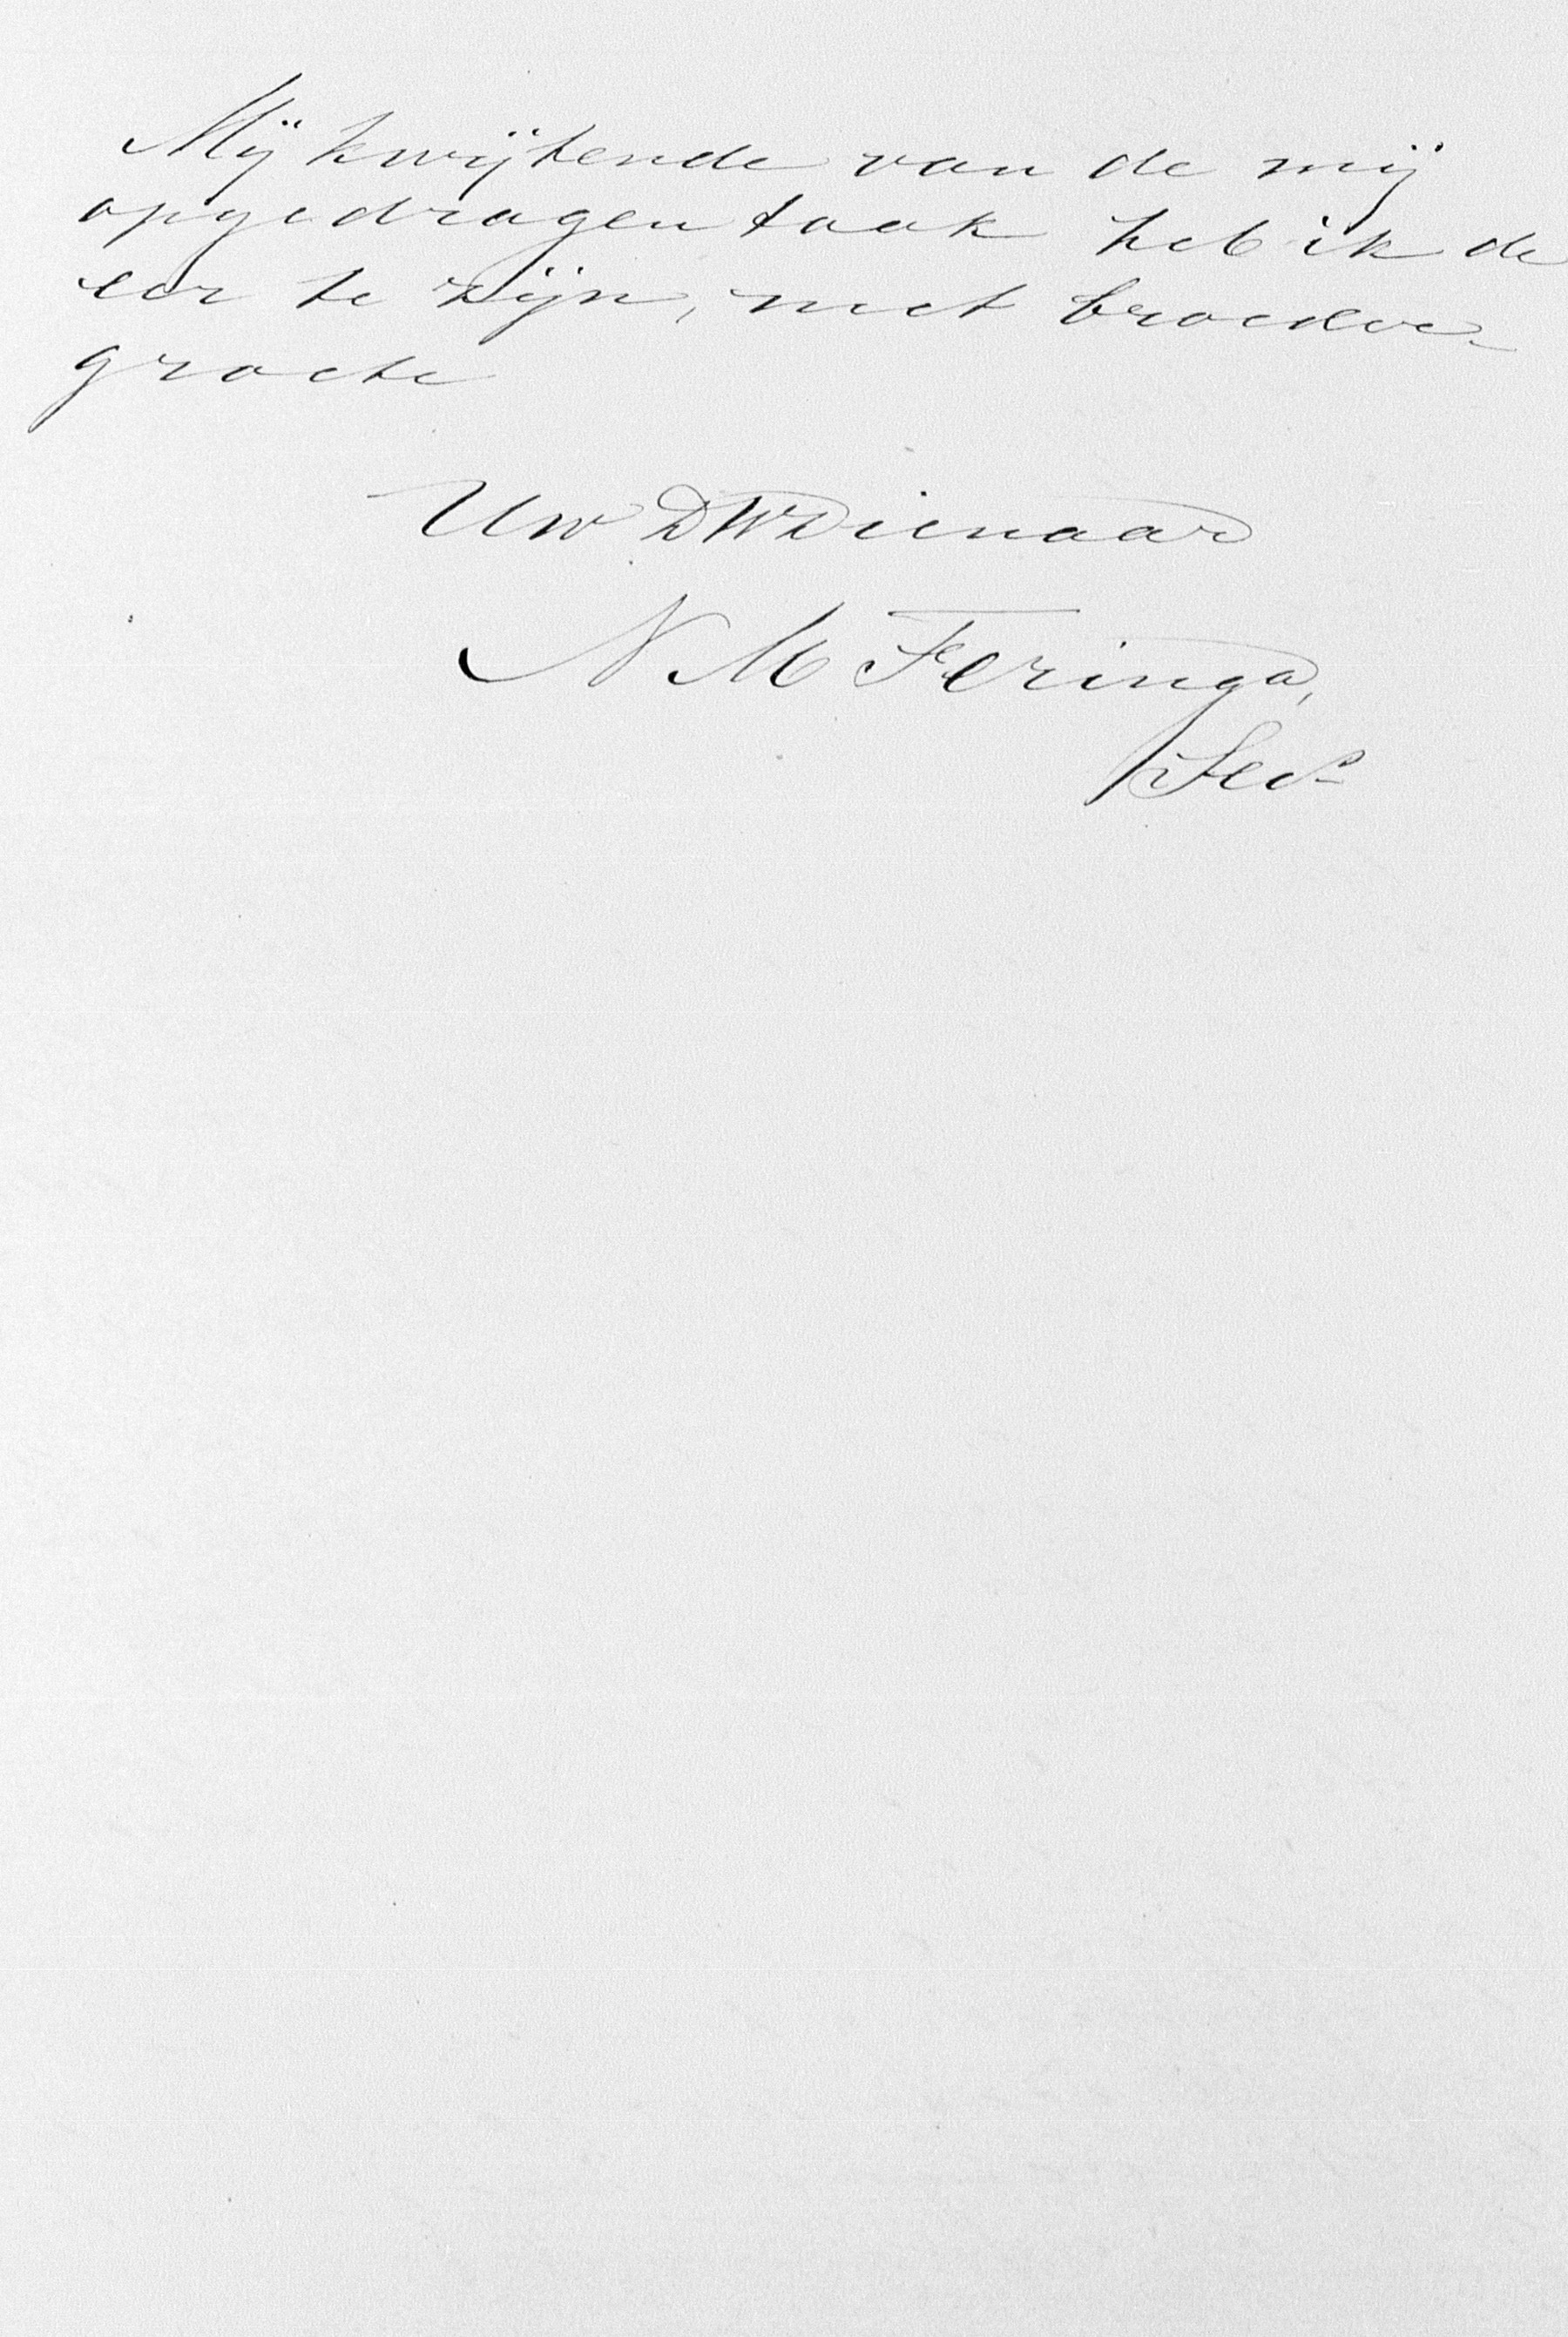 Mij kwijtende van de mij
opgedragen taak heb ik de
eer te zijn, met broeder
groete
Uw DWDienaar
N M Feringa,
Secr